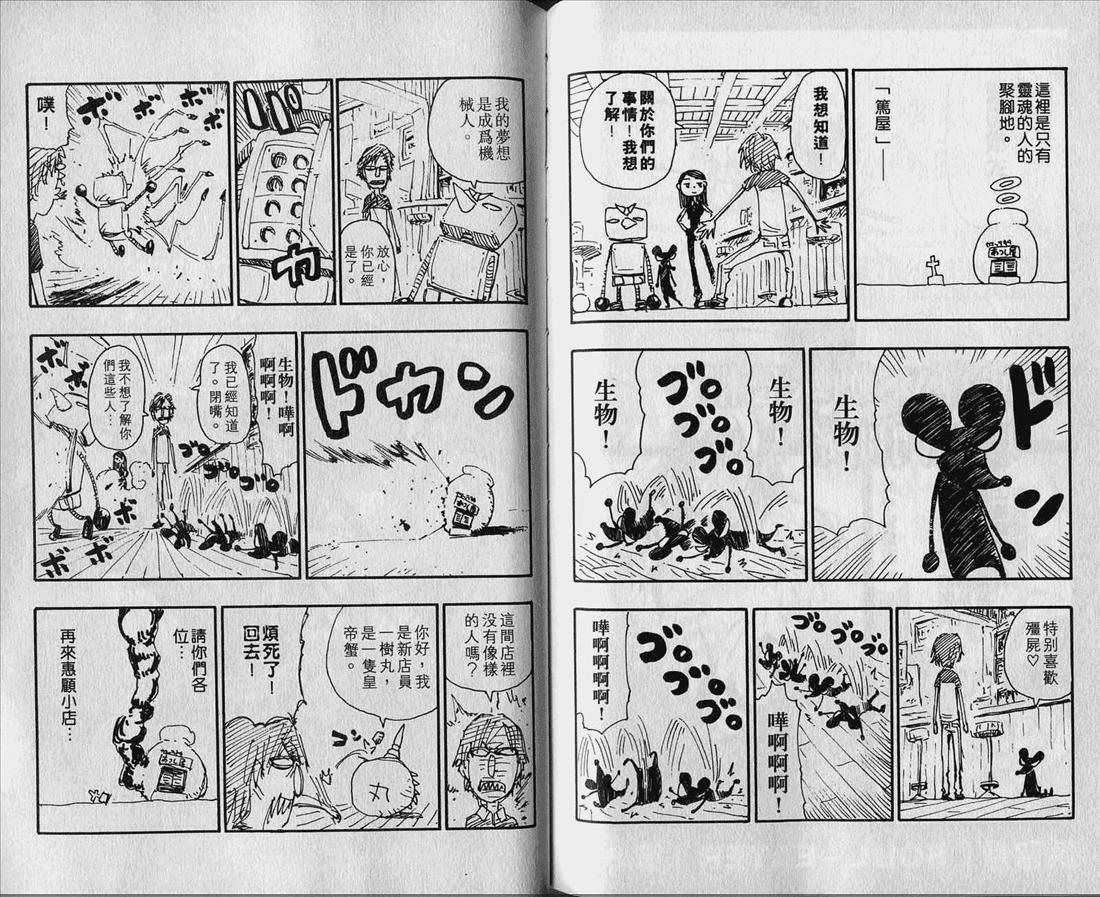 這裡是只有
靈魂的人的
聚腳地。
「篤屋」——
あつし屋
我想知道！
關於你們的
事情！我想
了解！
ドン
生物！
生物！
ゴロ
ゴロ
ゴロ
生物！
特别喜歡
殭屍♡
ゴロ
ゴロ
ゴロ
嘩啊啊啊！
ゴロ
ゴロ
ゴロ
嘩啊啊啊啊！
我的夢想
是成爲機
械人。
放心，
你已經
是了。
パカ
ボボボボ
噗！
ドカン
あつし屋
生物！嘩啊
啊啊啊！
我已經知道
了。閉嘴。
ゴロゴロゴロ
我不想了解你
們這些人…
ボボ
ボ
ボボ
這間店裡
没有像樣
的人嗎？
你好，我
是新店員
一樹丸，
是一隻皇
帝蟹。
コン
丸
煩死了！
回去！
請你們各
位…
再來惠顧小店…
あつし屋